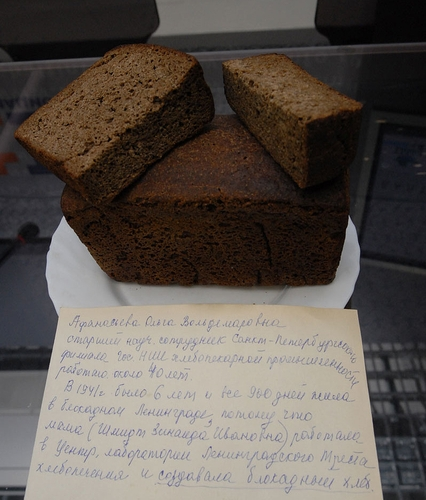 Афанасьева Ольга Вольдемаровна
старший науч. сотрудник Санкт-Петербургского
филиала Гос. НИИ хлебопекарной промышленности
работала около 40 лет.
В 1941г. было 6 лет и все 900 дней жила
в блокадном Ленинграде, потому что
мама (Шмидт Зинаида Ивановна) работала
в Центр. лаборатории Ленинградского Треста
хлебопечения и создавала блокадный хлеб